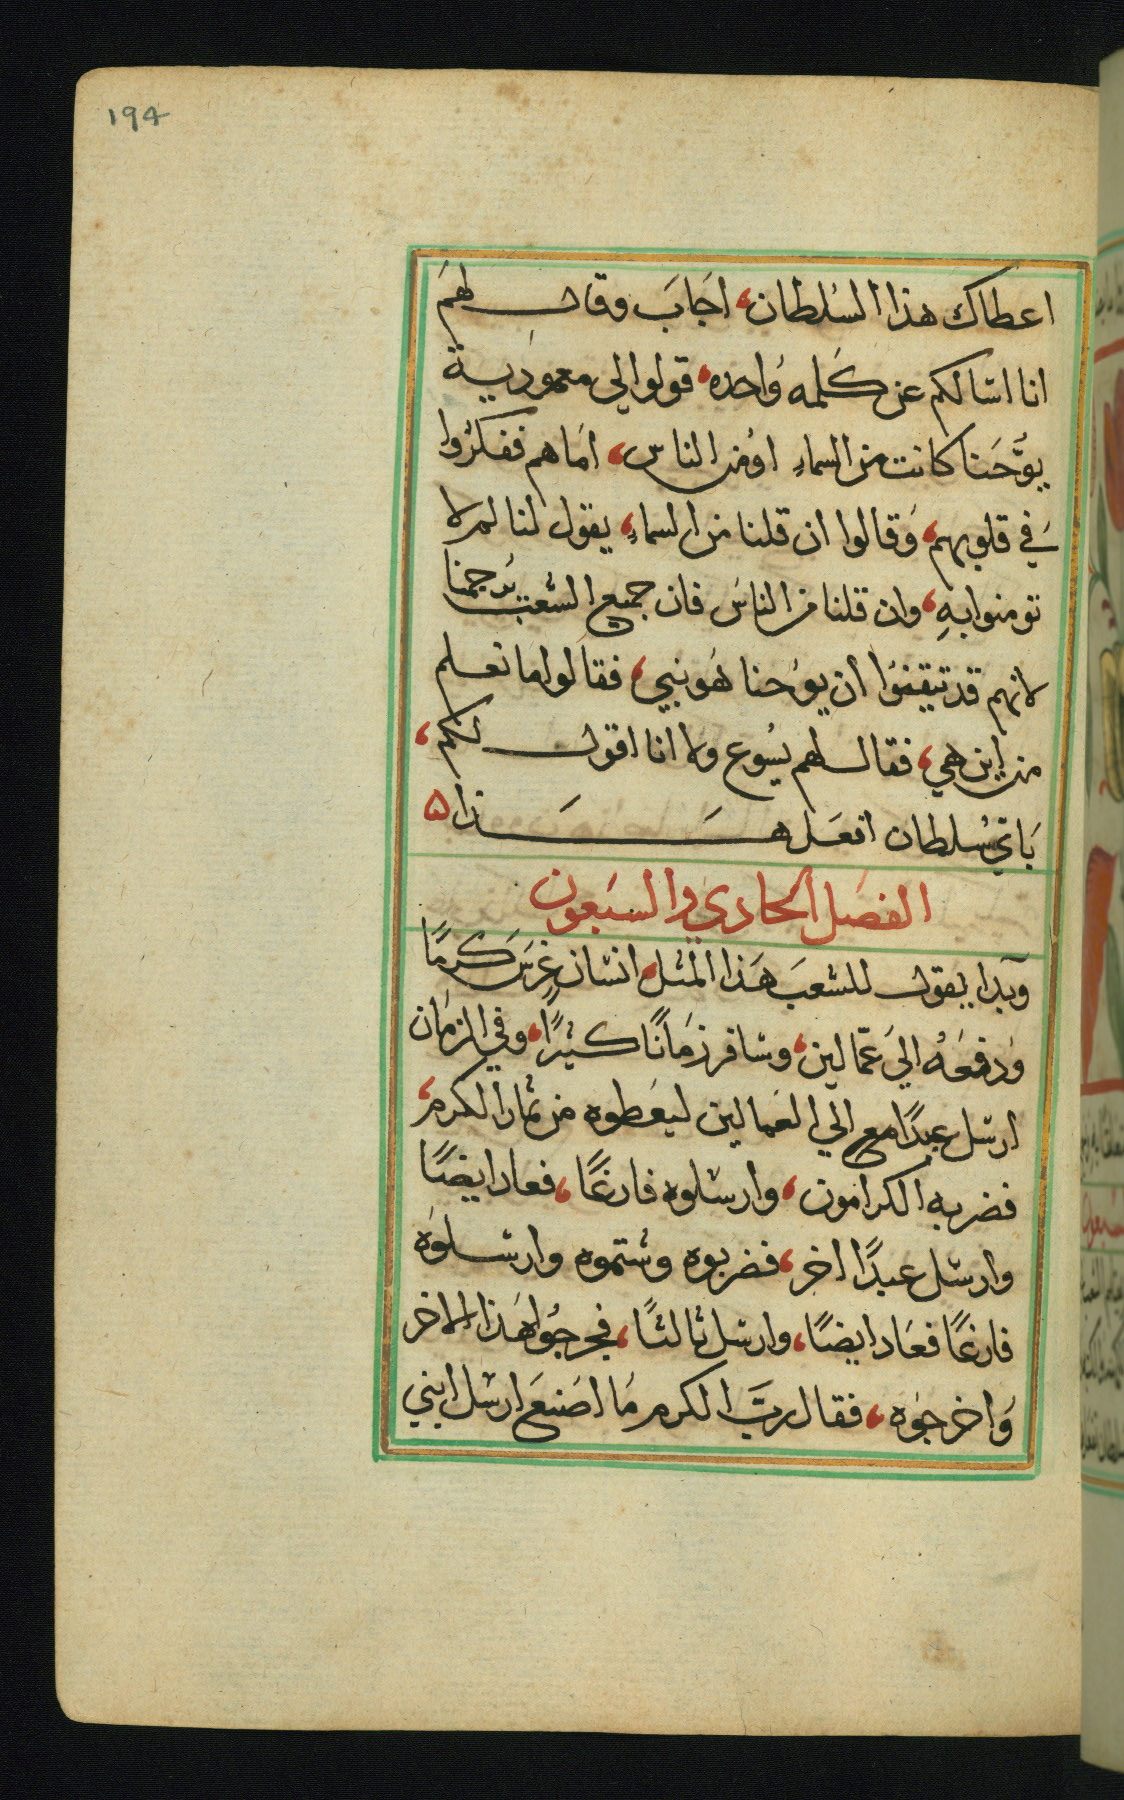 194
اعطاك هذا السلطان، اجَابَ وقال لهَم
انا اسالكم عن كلمه وُاحده، قولوا لي معموديـة
يوُّحَنا كانت من السماءِ اومن الناس، امَاهم ففكرُوا
فَي قلوبهم، وَقالوا ان قلنا من السماءِ، يقول لنا لم لا
تومنوا بهِ، وان قلنا من الناسَ فان جميع الشعب يَرجمنا
لانهم قد تيقنوُا أن يوُحنا هُو نبي، فقالوا ما نعلم
من اين هي، فقال لهم يسُوع ولا انا اقول لكم،
بَاي سُلطان افعَل هَــذَا ۵
الفصَل الحادي والسبَعون
وَبدا يقول للشعبَ هَذا المثل، انسَان غرسَ كرمًا
وَدفعَهُ اليَ عمّالين، وسَافر زمَانًا كثيرًا، وفي الزمَان
ارسَل عبدًا مع الي العَمالين ليعَطوه من ثمار الكرم،
فضربه الكرامون، وارسَلوه فارغًا، فعاد ايضًا
وارسَل عبدًا اخر، فضربوه وشتموه وارسَلوَه
فارغًا فعَاد ايضًا، وارسَل ثالثًا، فجرحوُا هَذا الاخر
وَاخرجوَه، فقال ربَّ الكرم مَا اصَنعَ ارسَل ابني